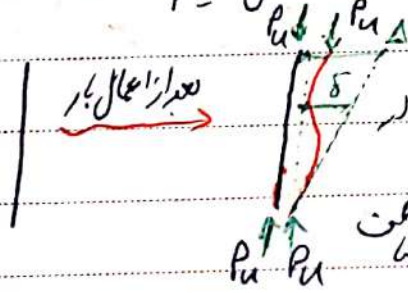 Pu Pu Δ
بعد از اعمال بار
δ
Pu Pu